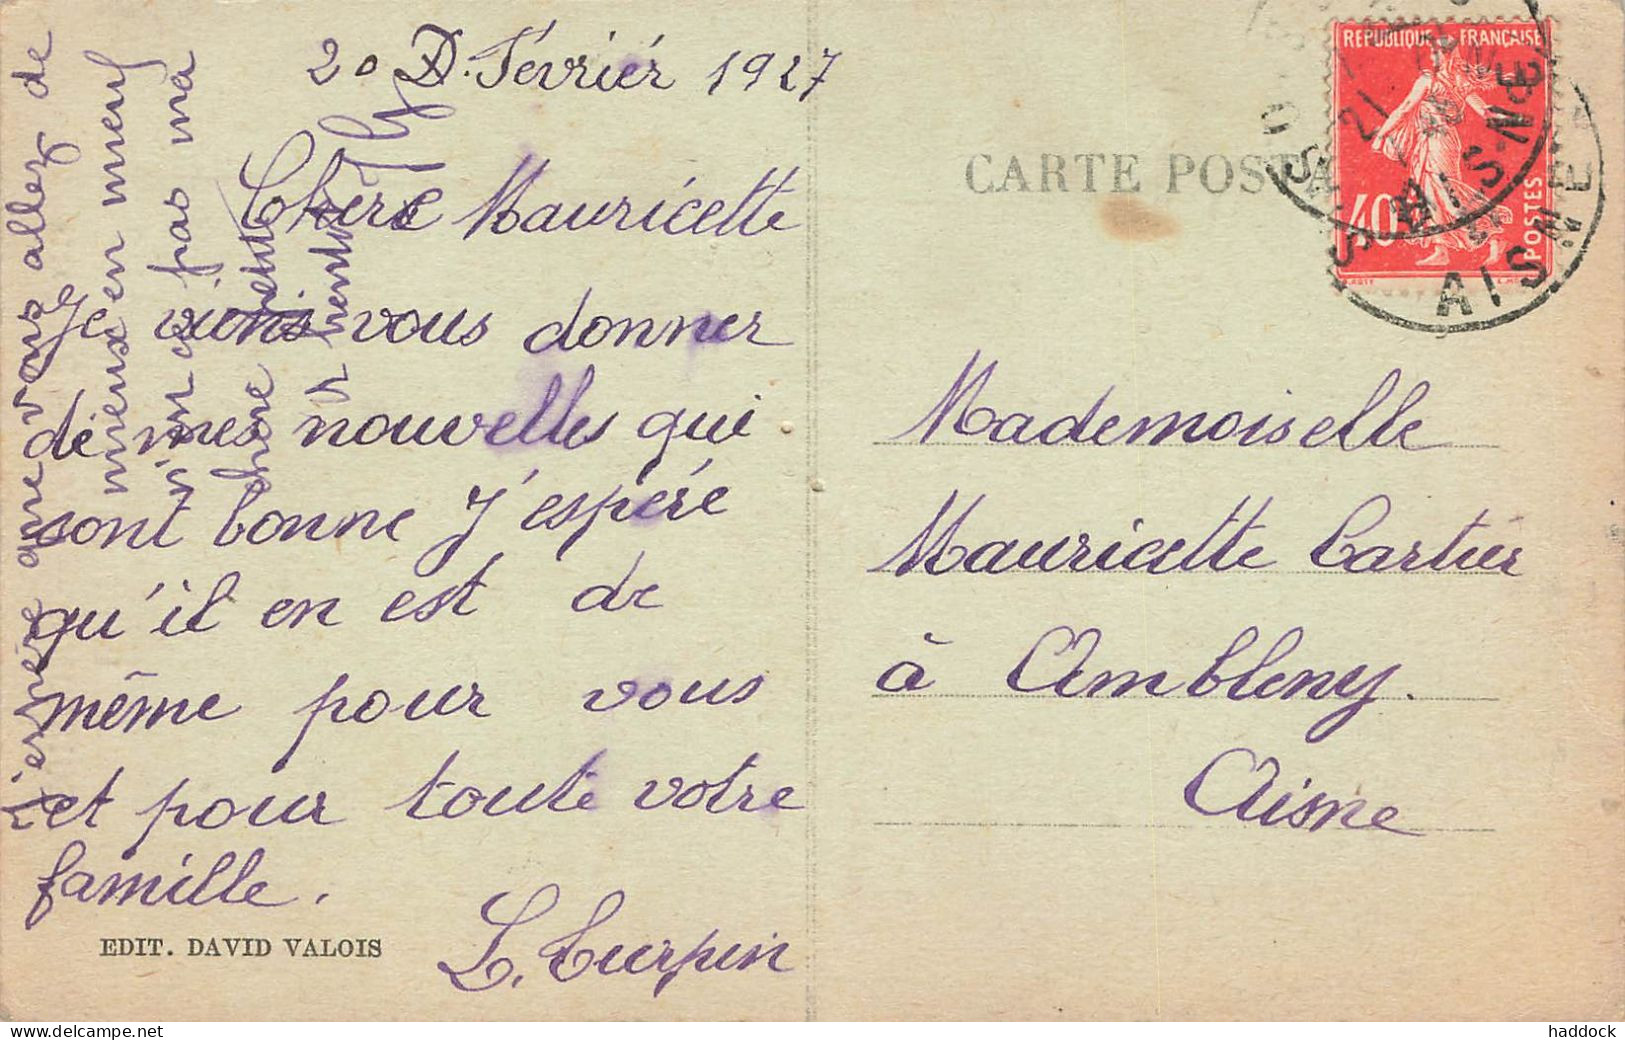 20 Février 1927
Chère Mauricette
Je viens vous donner
de mes nouvelles qui
sont bonne J'espére
qu'il en est de
même pour vous
et pour toute votre
famille.
L. Turpin
EDIT. DAVID VALOIS
J'espère que vous allez de
mieux en mieux
n'en es pas ma
chère
CARTE POSTA
REPUBLIQUE FRANÇAISE
40
POSTES
AISNE
AISNE
Mademoiselle
Mauricette Cartier
à Ambleny.
Aisne
haddock